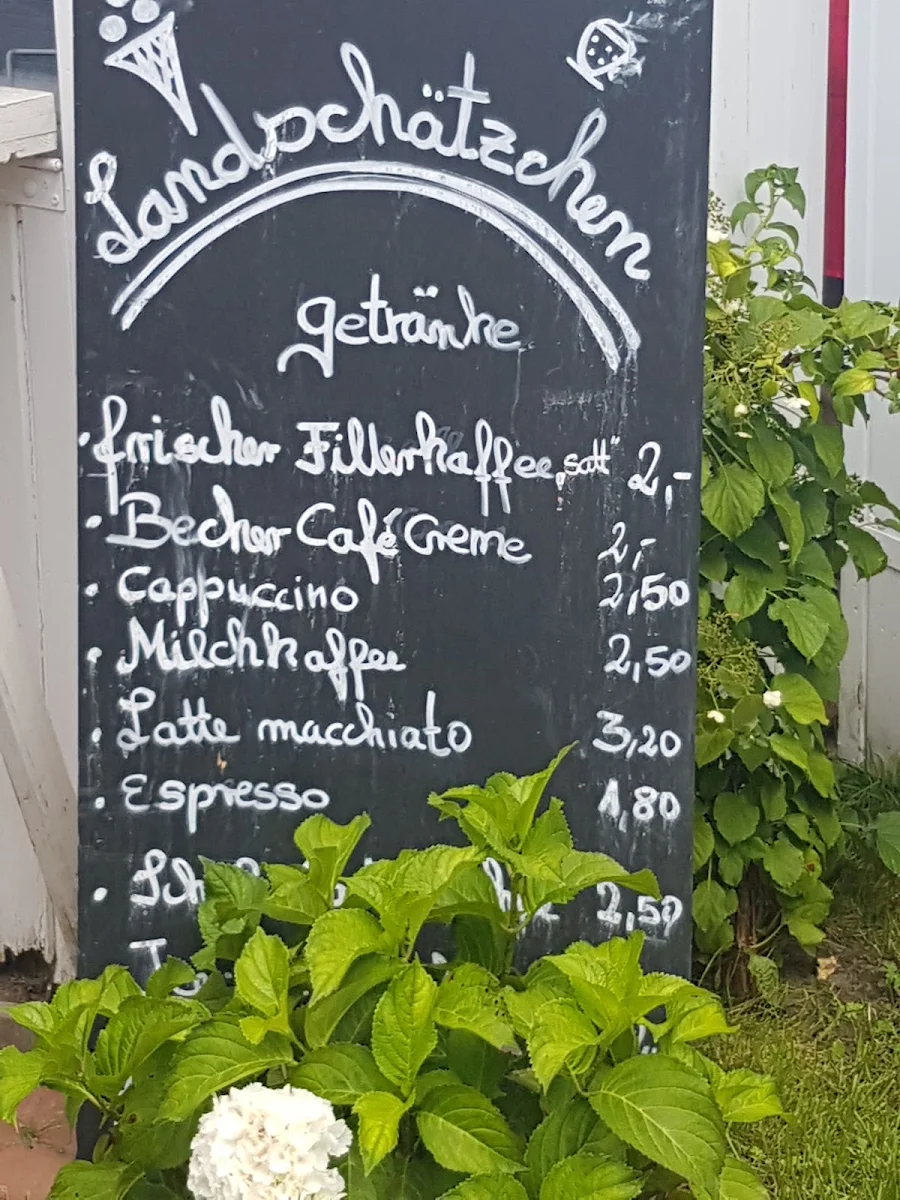 Landschätzchen
getränke
• frischer Fillerkaffee „satt" 2,-
• Becher Café Creme 2,-
• Cappuccino 2,50
• Milchkaffee 2,50
• Latte macchiato 3,20
• Espresso 1,80
• 2,50